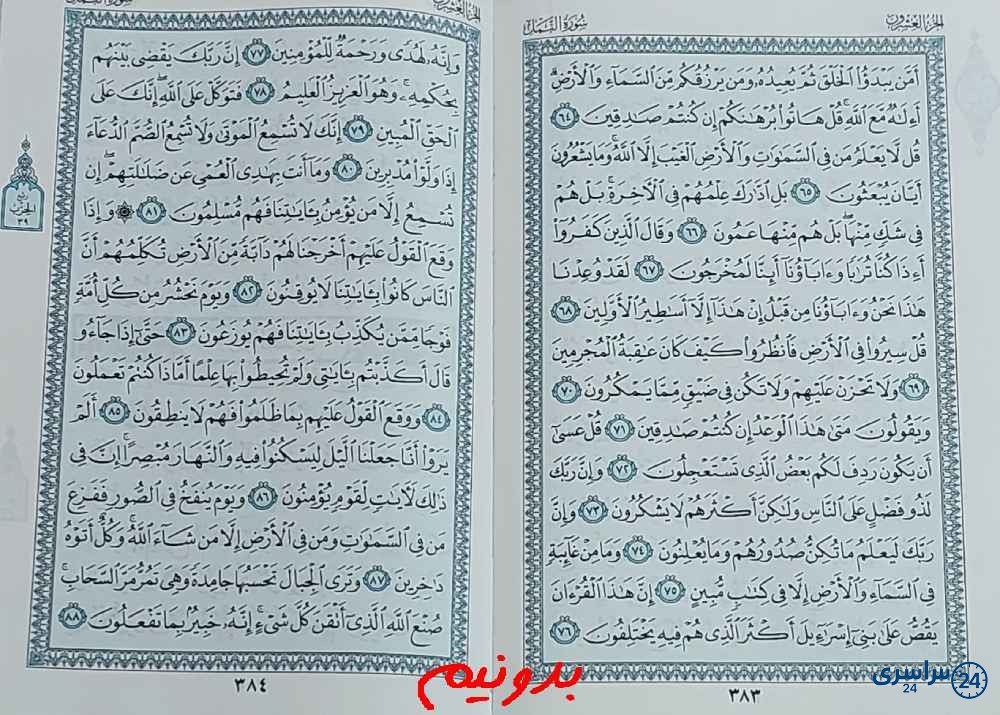 الجزء العشرون
سورة النمل
أَمَّن يَبْدَؤُا۟ الْخَلْقَ ثُمَّ يُعِيدُهُ وَمَن يَرْزُقُكُم مِّنَ السَّمَاءِ وَالْأَرْضِ
أَءِلَٰهٌ مَّعَ اللَّهِ قُلْ هَاتُوا بُرْهَٰنَكُمْ إِن كُنتُمْ صَٰدِقِينَ ٦٤
قُل لَّا يَعْلَمُ مَن فِي السَّمَٰوَٰتِ وَالْأَرْضِ الْغَيْبَ إِلَّا اللَّهُ وَمَا يَشْعُرُونَ
أَيَّانَ يُبْعَثُونَ ٦٥ بَلِ ادَّٰرَكَ عِلْمُهُمْ فِي الْآخِرَةِ بَلْ هُمْ
فِي شَكٍّ مِّنْهَا بَلْ هُم مِّنْهَا عَمُونَ ٦٦ وَقَالَ الَّذِينَ كَفَرُوا
أَءِذَا كُنَّا تُرَٰبًا وَءَابَاؤُنَا أَئِنَّا لَمُخْرَجُونَ ٦٧ لَقَدْ وُعِدْنَا
هَٰذَا نَحْنُ وَءَابَاؤُنَا مِن قَبْلُ إِنْ هَٰذَا إِلَّا أَسَٰطِيرُ الْأَوَّلِينَ ٦٨
قُلْ سِيرُوا فِي الْأَرْضِ فَانظُرُوا كَيْفَ كَانَ عَٰقِبَةُ الْمُجْرِمِينَ
٦٩ وَلَا تَحْزَنْ عَلَيْهِمْ وَلَا تَكُن فِي ضَيْقٍ مِّمَّا يَمْكُرُونَ ٧٠
وَيَقُولُونَ مَتَىٰ هَٰذَا الْوَعْدُ إِن كُنتُمْ صَٰدِقِينَ ٧١ قُلْ عَسَىٰ
أَن يَكُونَ رَدِفَ لَكُم بَعْضُ الَّذِي تَسْتَعْجِلُونَ ٧٢ وَإِنَّ رَبَّكَ
لَذُو فَضْلٍ عَلَى النَّاسِ وَلَٰكِنَّ أَكْثَرَهُمْ لَا يَشْكُرُونَ ٧٣ وَإِنَّ
رَبَّكَ لَيَعْلَمُ مَا تُكِنُّ صُدُورُهُمْ وَمَا يُعْلِنُونَ ٧٤ وَمَا مِنْ غَائِبَةٍ
فِي السَّمَاءِ وَالْأَرْضِ إِلَّا فِي كِتَٰبٍ مُّبِينٍ ٧٥ إِنَّ هَٰذَا الْقُرْءَانَ
يَقُصُّ عَلَىٰ بَنِي إِسْرَٰءِيلَ أَكْثَرَ الَّذِي هُمْ فِيهِ يَخْتَلِفُونَ ٧٦
٣٨٣
الجزء العشرون
سورة النمل
وَإِنَّهُ لَهُدًى وَرَحْمَةٌ لِّلْمُؤْمِنِينَ ٧٧ إِنَّ رَبَّكَ يَقْضِي بَيْنَهُم
بِحُكْمِهِ وَهُوَ الْعَزِيزُ الْعَلِيمُ ٧٨ فَتَوَكَّلْ عَلَى اللَّهِ إِنَّكَ عَلَى
الْحَقِّ الْمُبِينِ ٧٩ إِنَّكَ لَا تُسْمِعُ الْمَوْتَىٰ وَلَا تُسْمِعُ الصُّمَّ الدُّعَاءَ
إِذَا وَلَّوْا مُدْبِرِينَ ٨٠ وَمَا أَنتَ بِهَٰدِي الْعُمْيِ عَن ضَلَٰلَتِهِمْ إِن
تُسْمِعُ إِلَّا مَن يُؤْمِنُ بِـَٔايَٰتِنَا فَهُم مُّسْلِمُونَ ٨١ ۞ وَإِذَا
وَقَعَ الْقَوْلُ عَلَيْهِمْ أَخْرَجْنَا لَهُمْ دَابَّةً مِّنَ الْأَرْضِ تُكَلِّمُهُمْ أَنَّ
النَّاسَ كَانُوا بِـَٔايَٰتِنَا لَا يُوقِنُونَ ٨٢ وَيَوْمَ نَحْشُرُ مِن كُلِّ أُمَّةٍ
فَوْجًا مِّمَّن يُكَذِّبُ بِـَٔايَٰتِنَا فَهُمْ يُوزَعُونَ ٨٣ حَتَّىٰ إِذَا جَاءُو
قَالَ أَكَذَّبْتُم بِـَٔايَٰتِي وَلَمْ تُحِيطُوا بِهَا عِلْمًا أَمَّاذَا كُنتُمْ تَعْمَلُونَ
٨٤ وَوَقَعَ الْقَوْلُ عَلَيْهِم بِمَا ظَلَمُوا فَهُمْ لَا يَنطِقُونَ ٨٥ أَلَمْ
يَرَوْا أَنَّا جَعَلْنَا الَّيْلَ لِيَسْكُنُوا فِيهِ وَالنَّهَارَ مُبْصِرًا إِنَّ فِي
ذَٰلِكَ لَآيَٰتٍ لِّقَوْمٍ يُؤْمِنُونَ ٨٦ وَيَوْمَ يُنفَخُ فِي الصُّورِ فَفَزِعَ
مَن فِي السَّمَٰوَٰتِ وَمَن فِي الْأَرْضِ إِلَّا مَن شَاءَ اللَّهُ وَكُلٌّ أَتَوْهُ
دَٰخِرِينَ ٨٧ وَتَرَى الْجِبَالَ تَحْسَبُهَا جَامِدَةً وَهِيَ تَمُرُّ مَرَّ السَّحَابِ
صُنْعَ اللَّهِ الَّذِي أَتْقَنَ كُلَّ شَيْءٍ إِنَّهُ خَبِيرٌ بِمَا تَفْعَلُونَ ٨٨
ربع
الحزب
٣٩
٣٨٤
بدونیم
سراسری
24
24